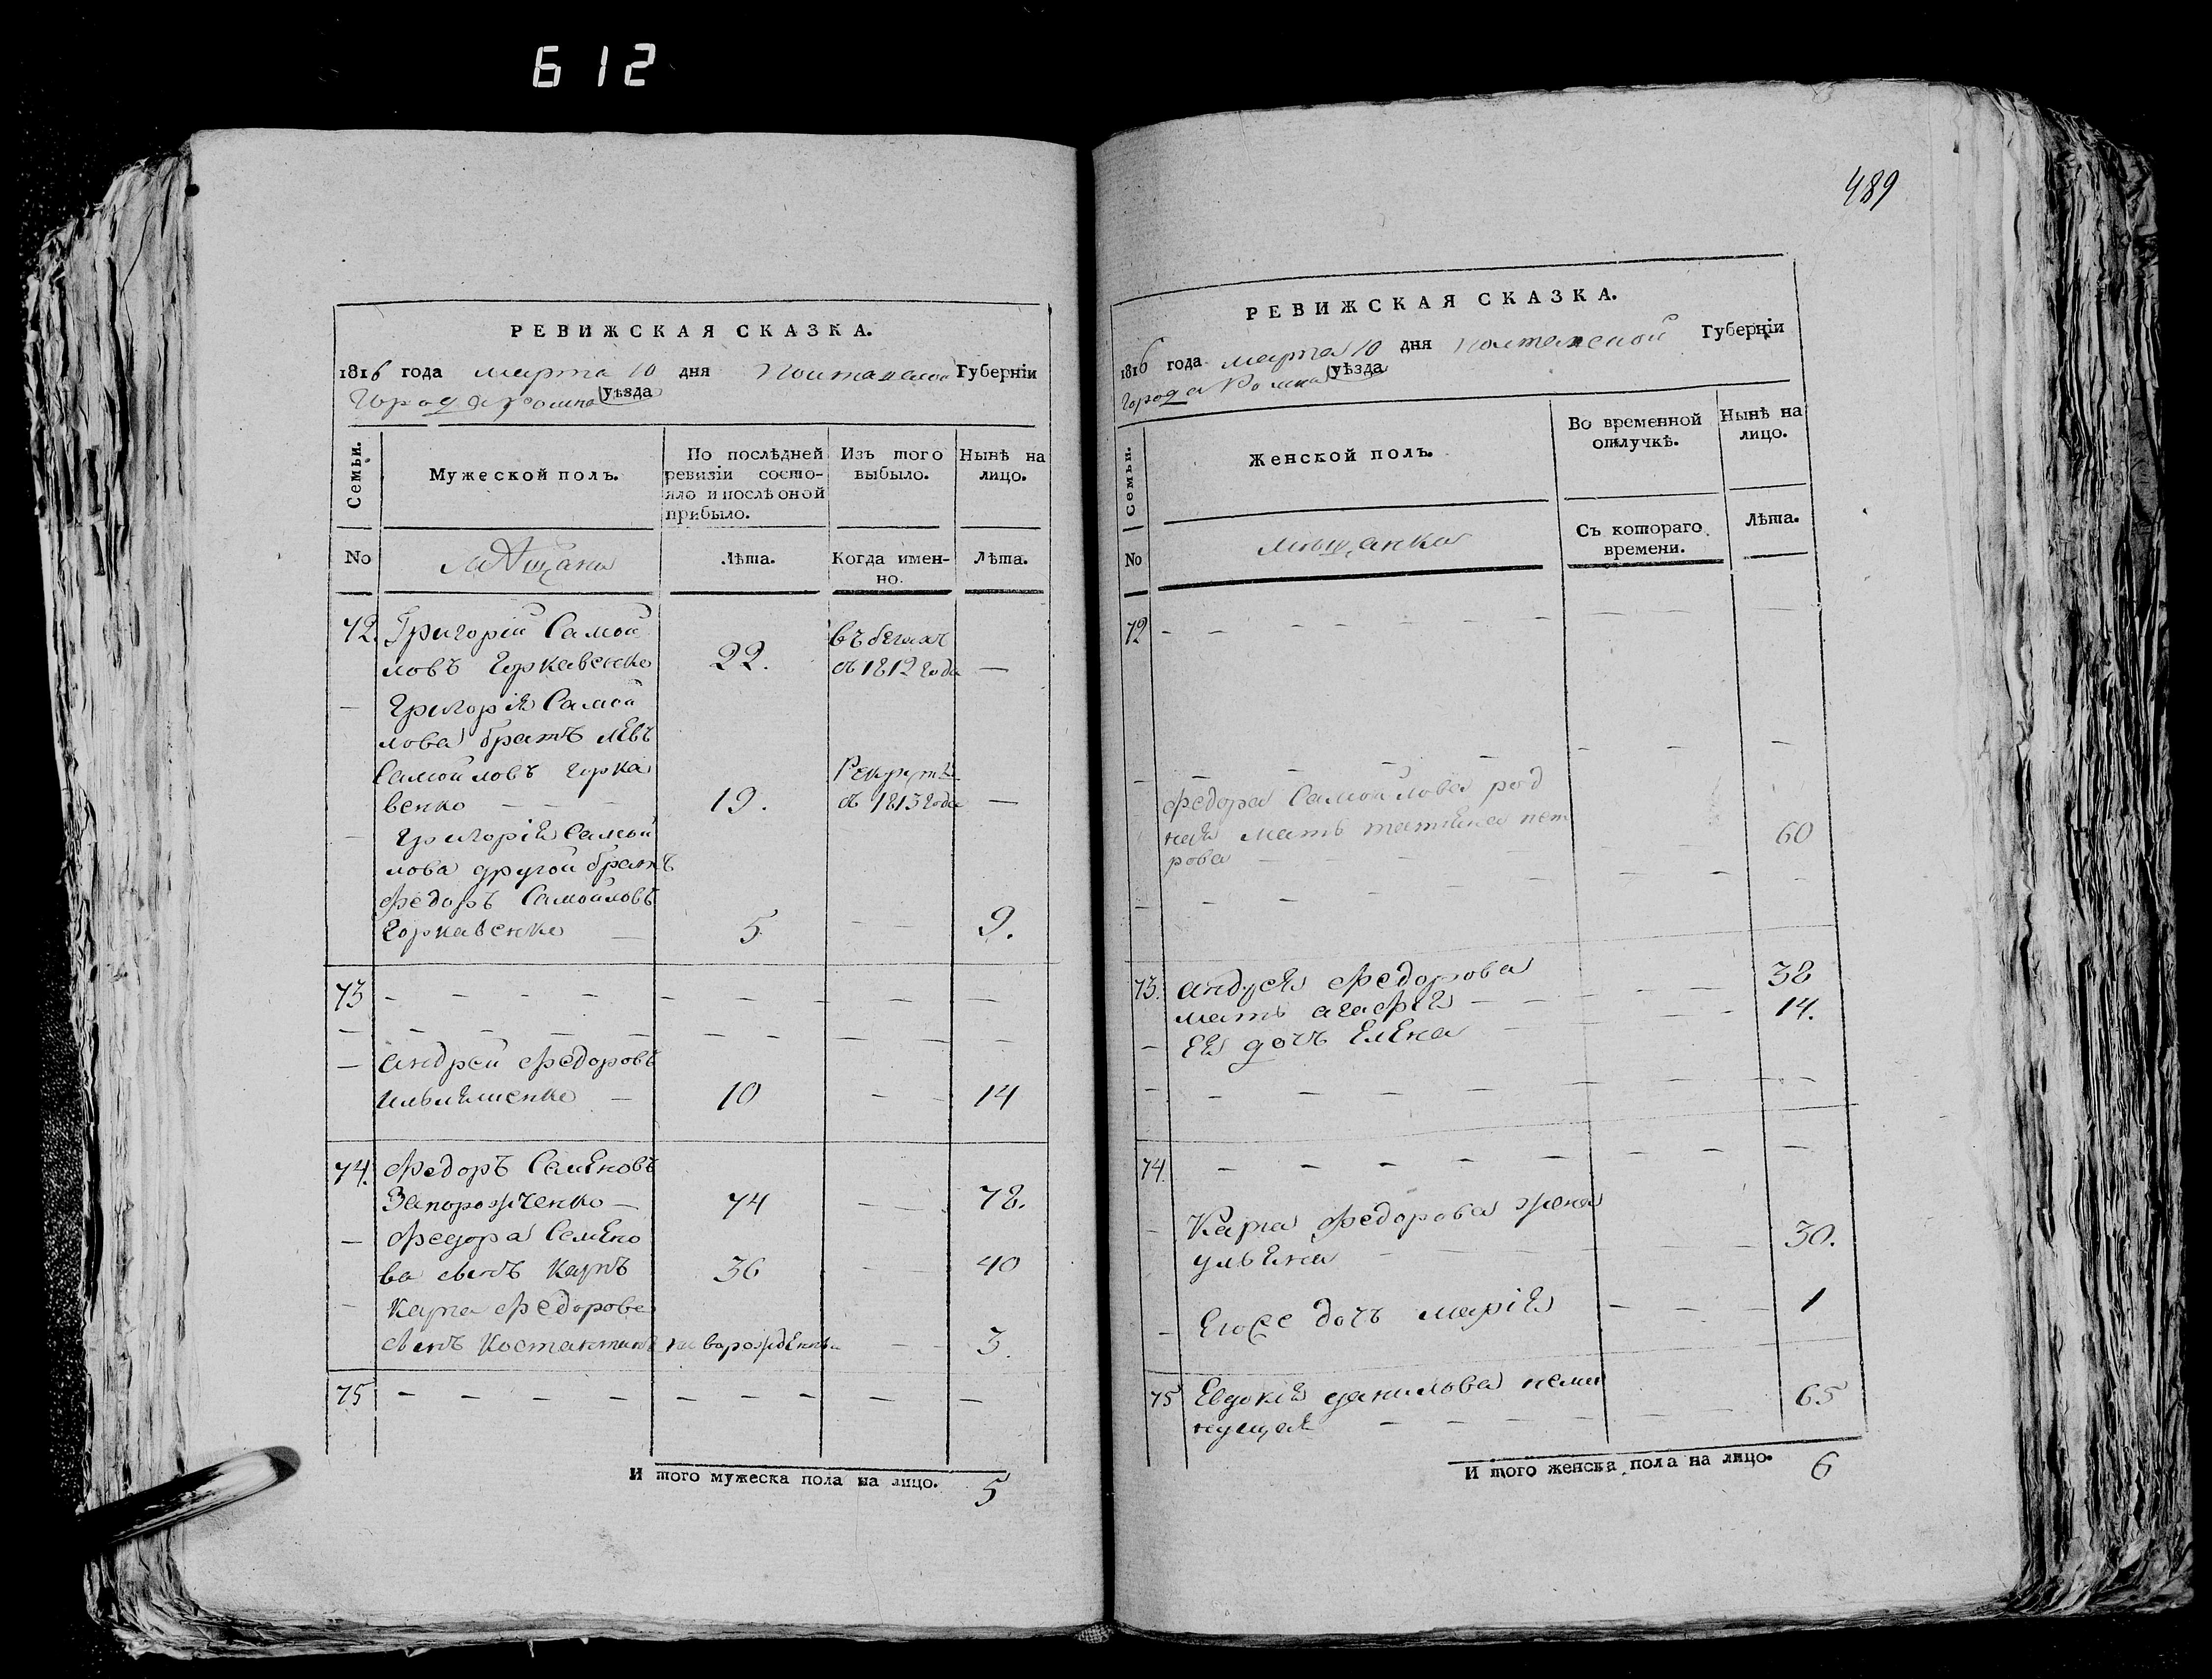 612
РЕВИЖСКАЯ СКАЗКА.
1816 года марта 10 дня Полтавской Губерніи
Города Ромна уѣзда
Семьи.
Мужеской полъ.
По послѣдней ревизіи состо-
яло и послѣ оной
прибыло.
Изъ того
выбыло.
Нынѣ на
лицо.
No
мѣщана
Лѣта.
Когда имен-
но.
Лѣта.
72. Григорій Самой
ловъ Горкавенко 22. въ бегахъ
съ 1812 года —
— Григорія Самой
лова братъ левъ
Самойловъ горка
венко — — — 19. Рекрутъ
съ 1813 года —
— Григорія Самой
лова другой братъ
Федоръ Самойловъ
Горкавенко — 5 — — 9.
73 — — — — — — — — — —
— — — — — — — — — —
— андрей Федоровъ
ильяшенко — 10 — — 14
74. Федоръ Семеновъ
Запорожченко — 74 — — 78.
— Федора Семено
ва сынъ Карпъ 36 — — 40
— Карпа Федорова
сынъ Костантинъ новорожденны — — 3.
75 — — — — — — — — — —
И того мужеска пола на лицо. 5
489
РЕВИЖСКАЯ СКАЗКА.
1816 года марта 10 дня Полтавской Губерніи
города Ромна уѣзда
Семьи.
Женской полъ.
Во временной
отлучкѣ.
Нынѣ на
лицо.
No
мѣщанки
Съ котораго
времени.
Лѣта.
72 — — — — — — — — —
— — — — — — — —
Федора Самойлова род
ная мать татияна пет
рова — — — 60
— — — — — — — —
73. андрея Федорова
мать агафія — — — — 38
— Ея дочь Елена — — — 14.
— — — — — — — —
74. — — — — — — — —
— Карпа Федорова жена
ульяна — — — — 30.
— Егоже дочь марія — — — 1
75 Евдокія данилова неми
нущая — — — — 65
И того женска пола на лицо. 6